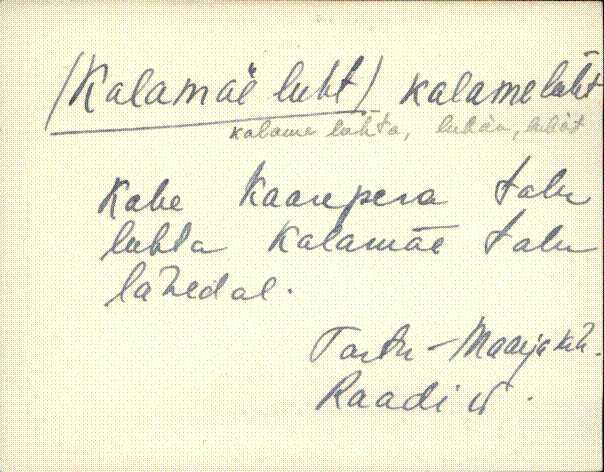 /Kalamäe luht/ kalame luht
kalame luhta, luhan, luhat
Kahe Kaarepera talu
luhta Kalamäe talu
lähedal.
Tartu-Maarja kih.
Raadi v.